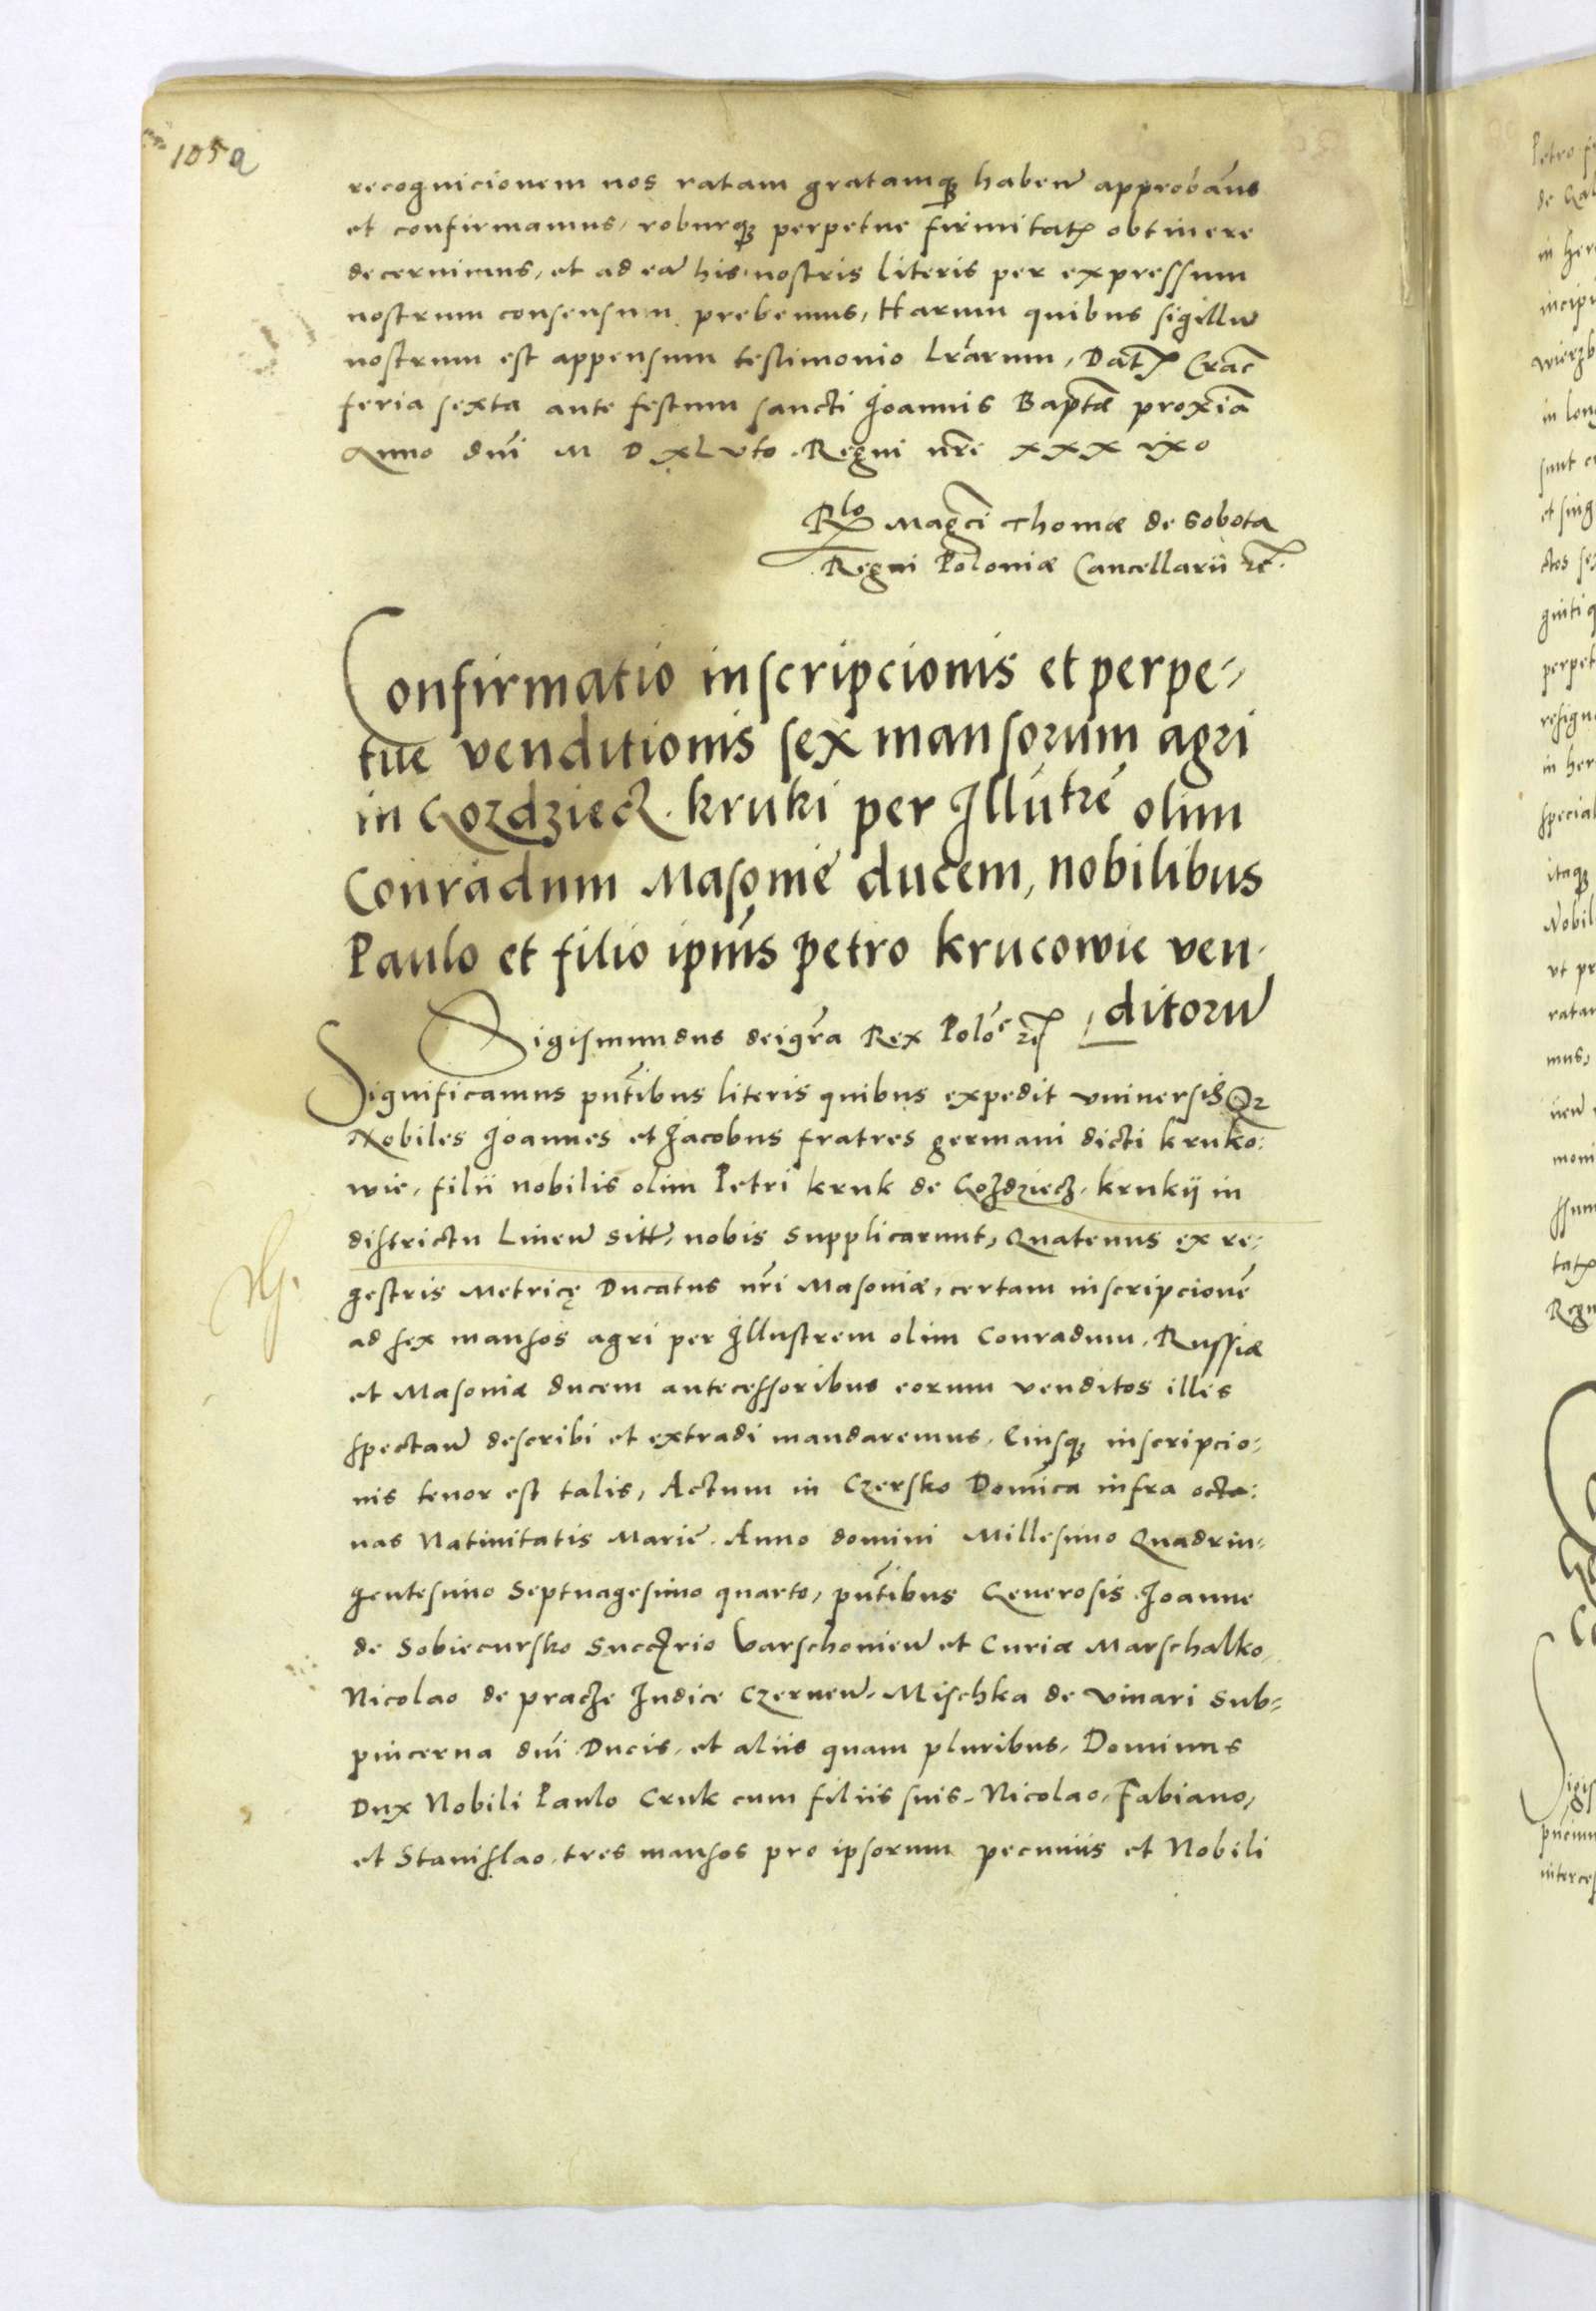 105a
recognicionem nos ratam gratamqȝ haben̄ approbam̄us
et confirmamus, roburqȝ perpetue firmitatꝭ obtinere
decernimus, et ad ea his nostris literis per expressum
nostrum consensum prebemus, Harum quibus sigillū
nostrum est appensum testimonio Lrārum, Datꝭ Crac̄
feria sexta ante festum sancti Joannis Bapt̄æ proxīa
Anno dn̄i M D XLvto. Regni nr̄i xxx ixo
Rlo Magc̄i Thomæ de Sobota
Regni Poloniæ Cancellarii ꝛc̄.
Confirmatio inscripcionis et perpe-
tue venditionis sex mansorum agri
in Gozdziecz. kruki per Illūtrē olim
Conradum Masoniē ducem, nobilibus
Paulo et filio ipiūs Petro Krucowie ven-
ditorū
Sigismundus dei gr̄a Rex Polōe ꝛc̄
Significamus pn̄tibus literis quibus expedit vniuersis Qꝛ
Nobiles Joannes et Jacobus fratres germani dicti kruko:
wie, filii nobilis olim Petri kruk de Gozdziecz. krukij in
districtu Linen̄ sitt̄, nobis supplicarunt, Quatenus ex re-
gestris Metricę Ducatus nr̄i Masoniæ, certam inscripcionē
ad sex mansos agri per Illustrem olim Conradum, Russiæ
et Masoniæ ducem antecessoribus eorum venditos illis
spectan̄ describi et extradi mandaremus, Cuiusqȝ inscripcio:
nis tenor est talis, Actum in Czersko Domīca infra octa:
uas Natiuitatis Mariē. Anno domini Millesimo Quadrin-
gentesimo Septuagesimo quarto, pn̄tibus Generosis Joanne
de Sobiecursko Varschouien̄ et Curiæ Marschalko,
Nicolao de pracze Judice Czernen̄, Mischka de vinari Sub-
pincerna dn̄i Ducis, et aliis quam pluribus, Dominus
Dux Nobili Paulo Cruk cum filiis suis, Nicolao, Fabiano,
et Stanislao, tres mansos pro ipsorum pecuniis et Nobili